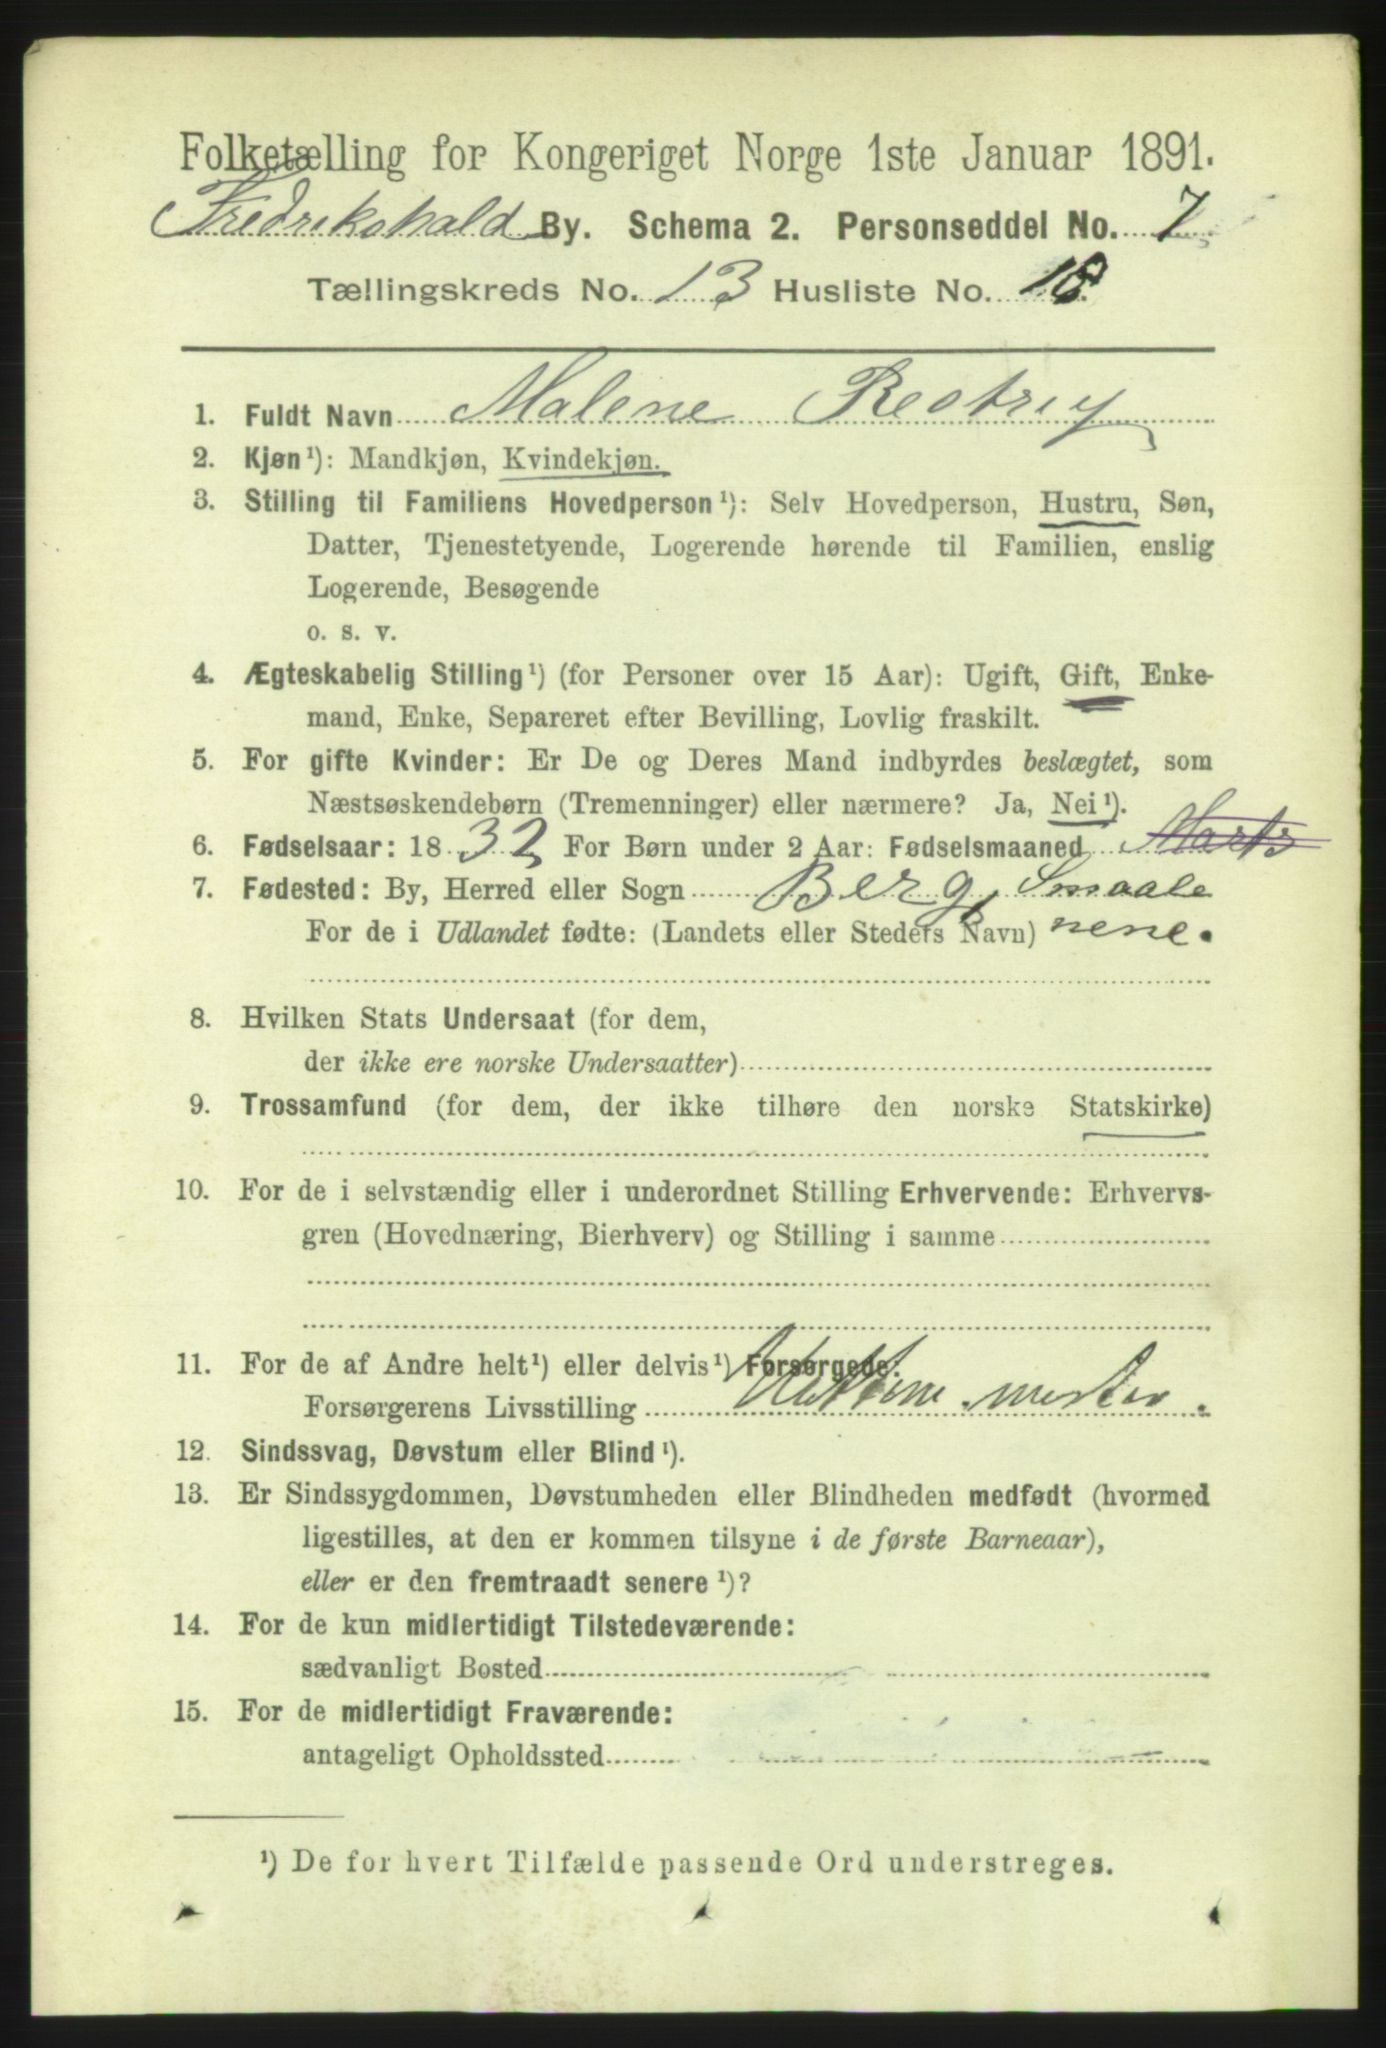 Folketælling for Kongeriget Norge 1ste Januar 1891.
Fredrikshald By. Schema 2. Personseddel No. 7
Tællingskreds No. 13 Husliste No. 18.
1. Fuldt Navn Malene
2. Kjøn¹): Mandkjøn, Kvindekjøn.
3. Stilling til Familiens Hovedperson¹): Selv Hovedperson, Hustru, Søn,
Datter, Tjenestetyende, Logerende hørende til Familien, enslig
Logerende, Besøgende
o. s. v.
4. Ægteskabelig Stilling¹) (for Personer over 15 Aar): Ugift, Gift, Enke-
mand, Enke, Separeret efter Bevilling, Lovlig fraskilt.
5. For gifte Kvinder: Er De og Deres Mand indbyrdes beslægtet, som
Næstsøskendebørn (Tremenninger) eller nærmere? Ja, Nei¹).
6. Fødselsaar: 1832 For Børn under 2 Aar: Fødselsmaaned Marts
7. Fødested: By, Herred eller Sogn Berg, Smaale
For de i Udlandet fødte: (Landets eller Steders Navn) nene.
8. Hvilken Stats Undersaat (for dem,
der ikke ere norske Undersaatter)
9. Trossamfund (for dem, der ikke tilhøre den norske Statskirke)
10. For de i selvstændig eller i underordnet Stilling Erhvervende: Erhvervs-
gren (Hovednæring, Bierhverv) og Stilling i samme
11. For de af Andre helt¹) eller delvis¹) Forsørgede:
Forsørgerens Livsstilling
12. Sindssvag, Døvstum eller Blind¹).
13. Er Sindssygdommen, Døvstumheden eller Blindheden medfødt (hvormed
ligestilles, at den er kommen tilsyne i de første Barneaar),
eller er den fremtraadt senere¹)?
14. For de kun midlertidigt Tilstedeværende:
sædvanligt Bosted
15. For de midlertidigt Fraværende:
antageligt Opholdssted
¹) De for hvert Tilfælde passende Ord understreges.